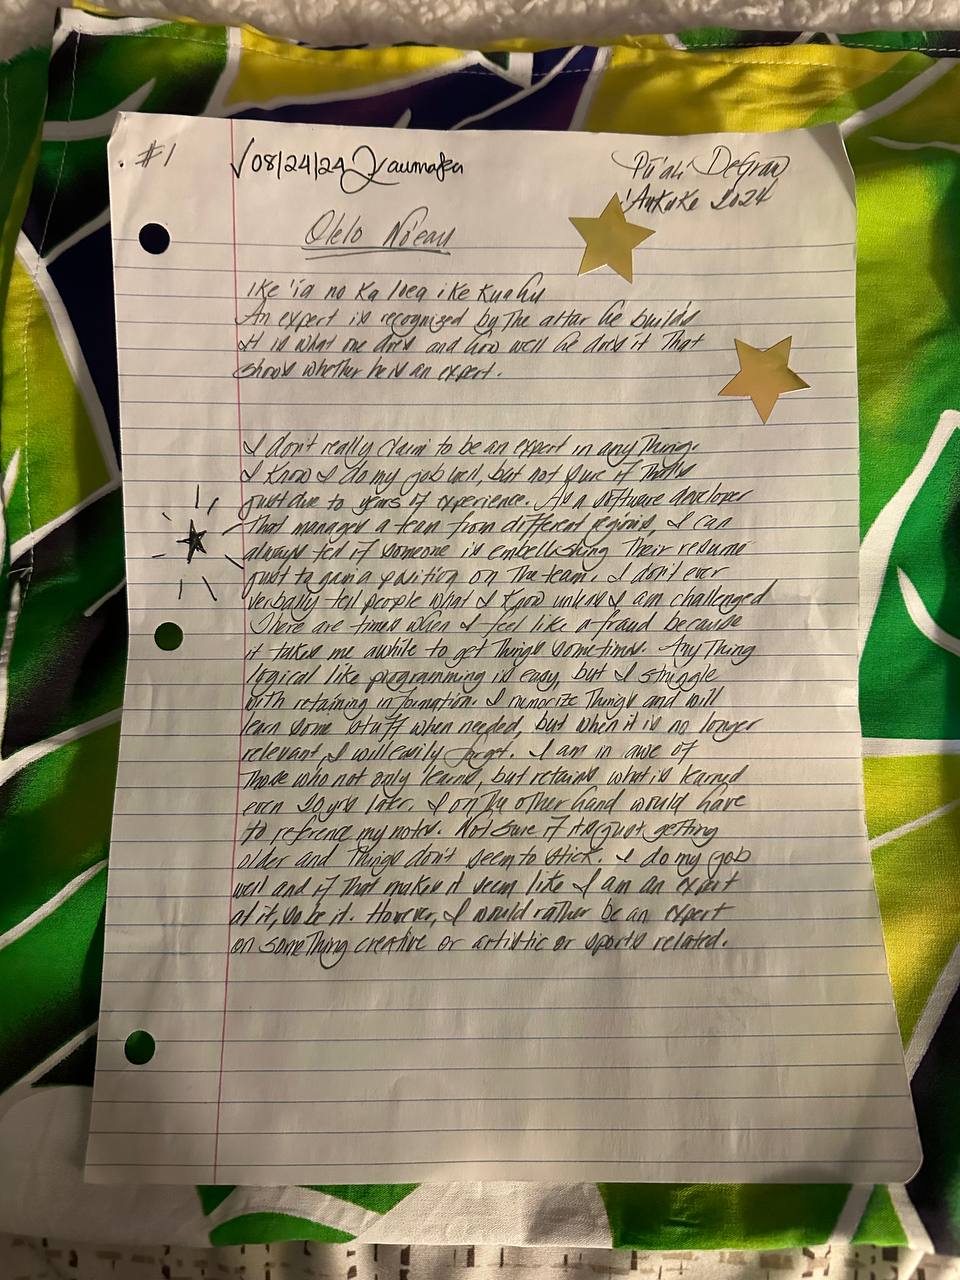 #1
√08/24/24 Kaumaka
Pū'ali DeGraw
'Aukake 2024
Olelo No'eau
Ike 'ia no ka loea i ke kuahu
An expert is recognized by the altar he builds
It is what one does and how well he does it that
shows whether he is an expert.
I don't really claim to be an expert in anything.
I know I do my job well, but not sure if that's
just due to years of experience. As a software developer
that manages a team from different regions, I can
always tell if someone is embellishing their resume
just to gain a position on the team. I don't ever
verbally tell people what I know unless I am challenged
There are times when I feel like a fraud because
it takes me awhile to get things sometimes. Anything
logical like programming is easy, but I struggle
with retaining information. I memorize things and will
learn some stuff when needed, but when it is no longer
relevant, I will easily forget. I am in awe of
those who not only learns, but retains what is learned
even 20 yrs later. I on the other hand would have
to reference my notes. Not sure if its just getting
older and things don't seem to stick. I do my job
well and if that makes it seem like I am an expert
at it, so be it. However, I would rather be an expert
on something creative or artistic or sports related.